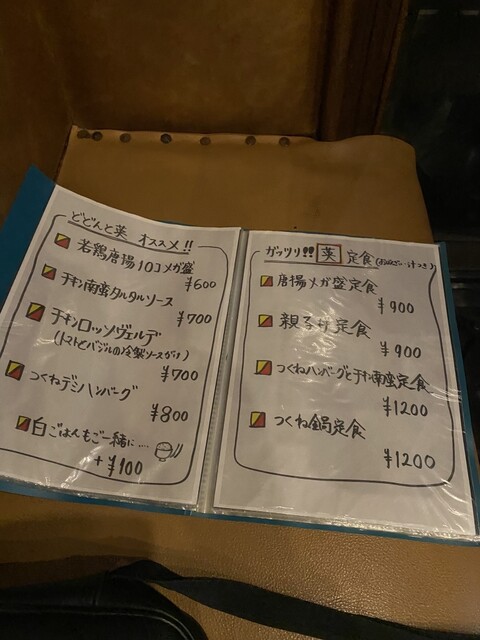 どどんと葵 オススメ!!
若鶏唐揚10コメガ盛
¥600
チキン南蛮タルタルソース
¥700
チキンロッソヴェルデ
(トマトとバジルの冷製ソースがけ)
¥700
つくねデミハンバーグ
¥800
白ごはんもご一緒に....
+¥100
ガッツリ!! 葵 定食
唐揚メガ盛定食
¥900
親子丼定食
¥900
つくねハンバーグとチキン南蛮定食
¥1200
つくね鍋定食
¥1200